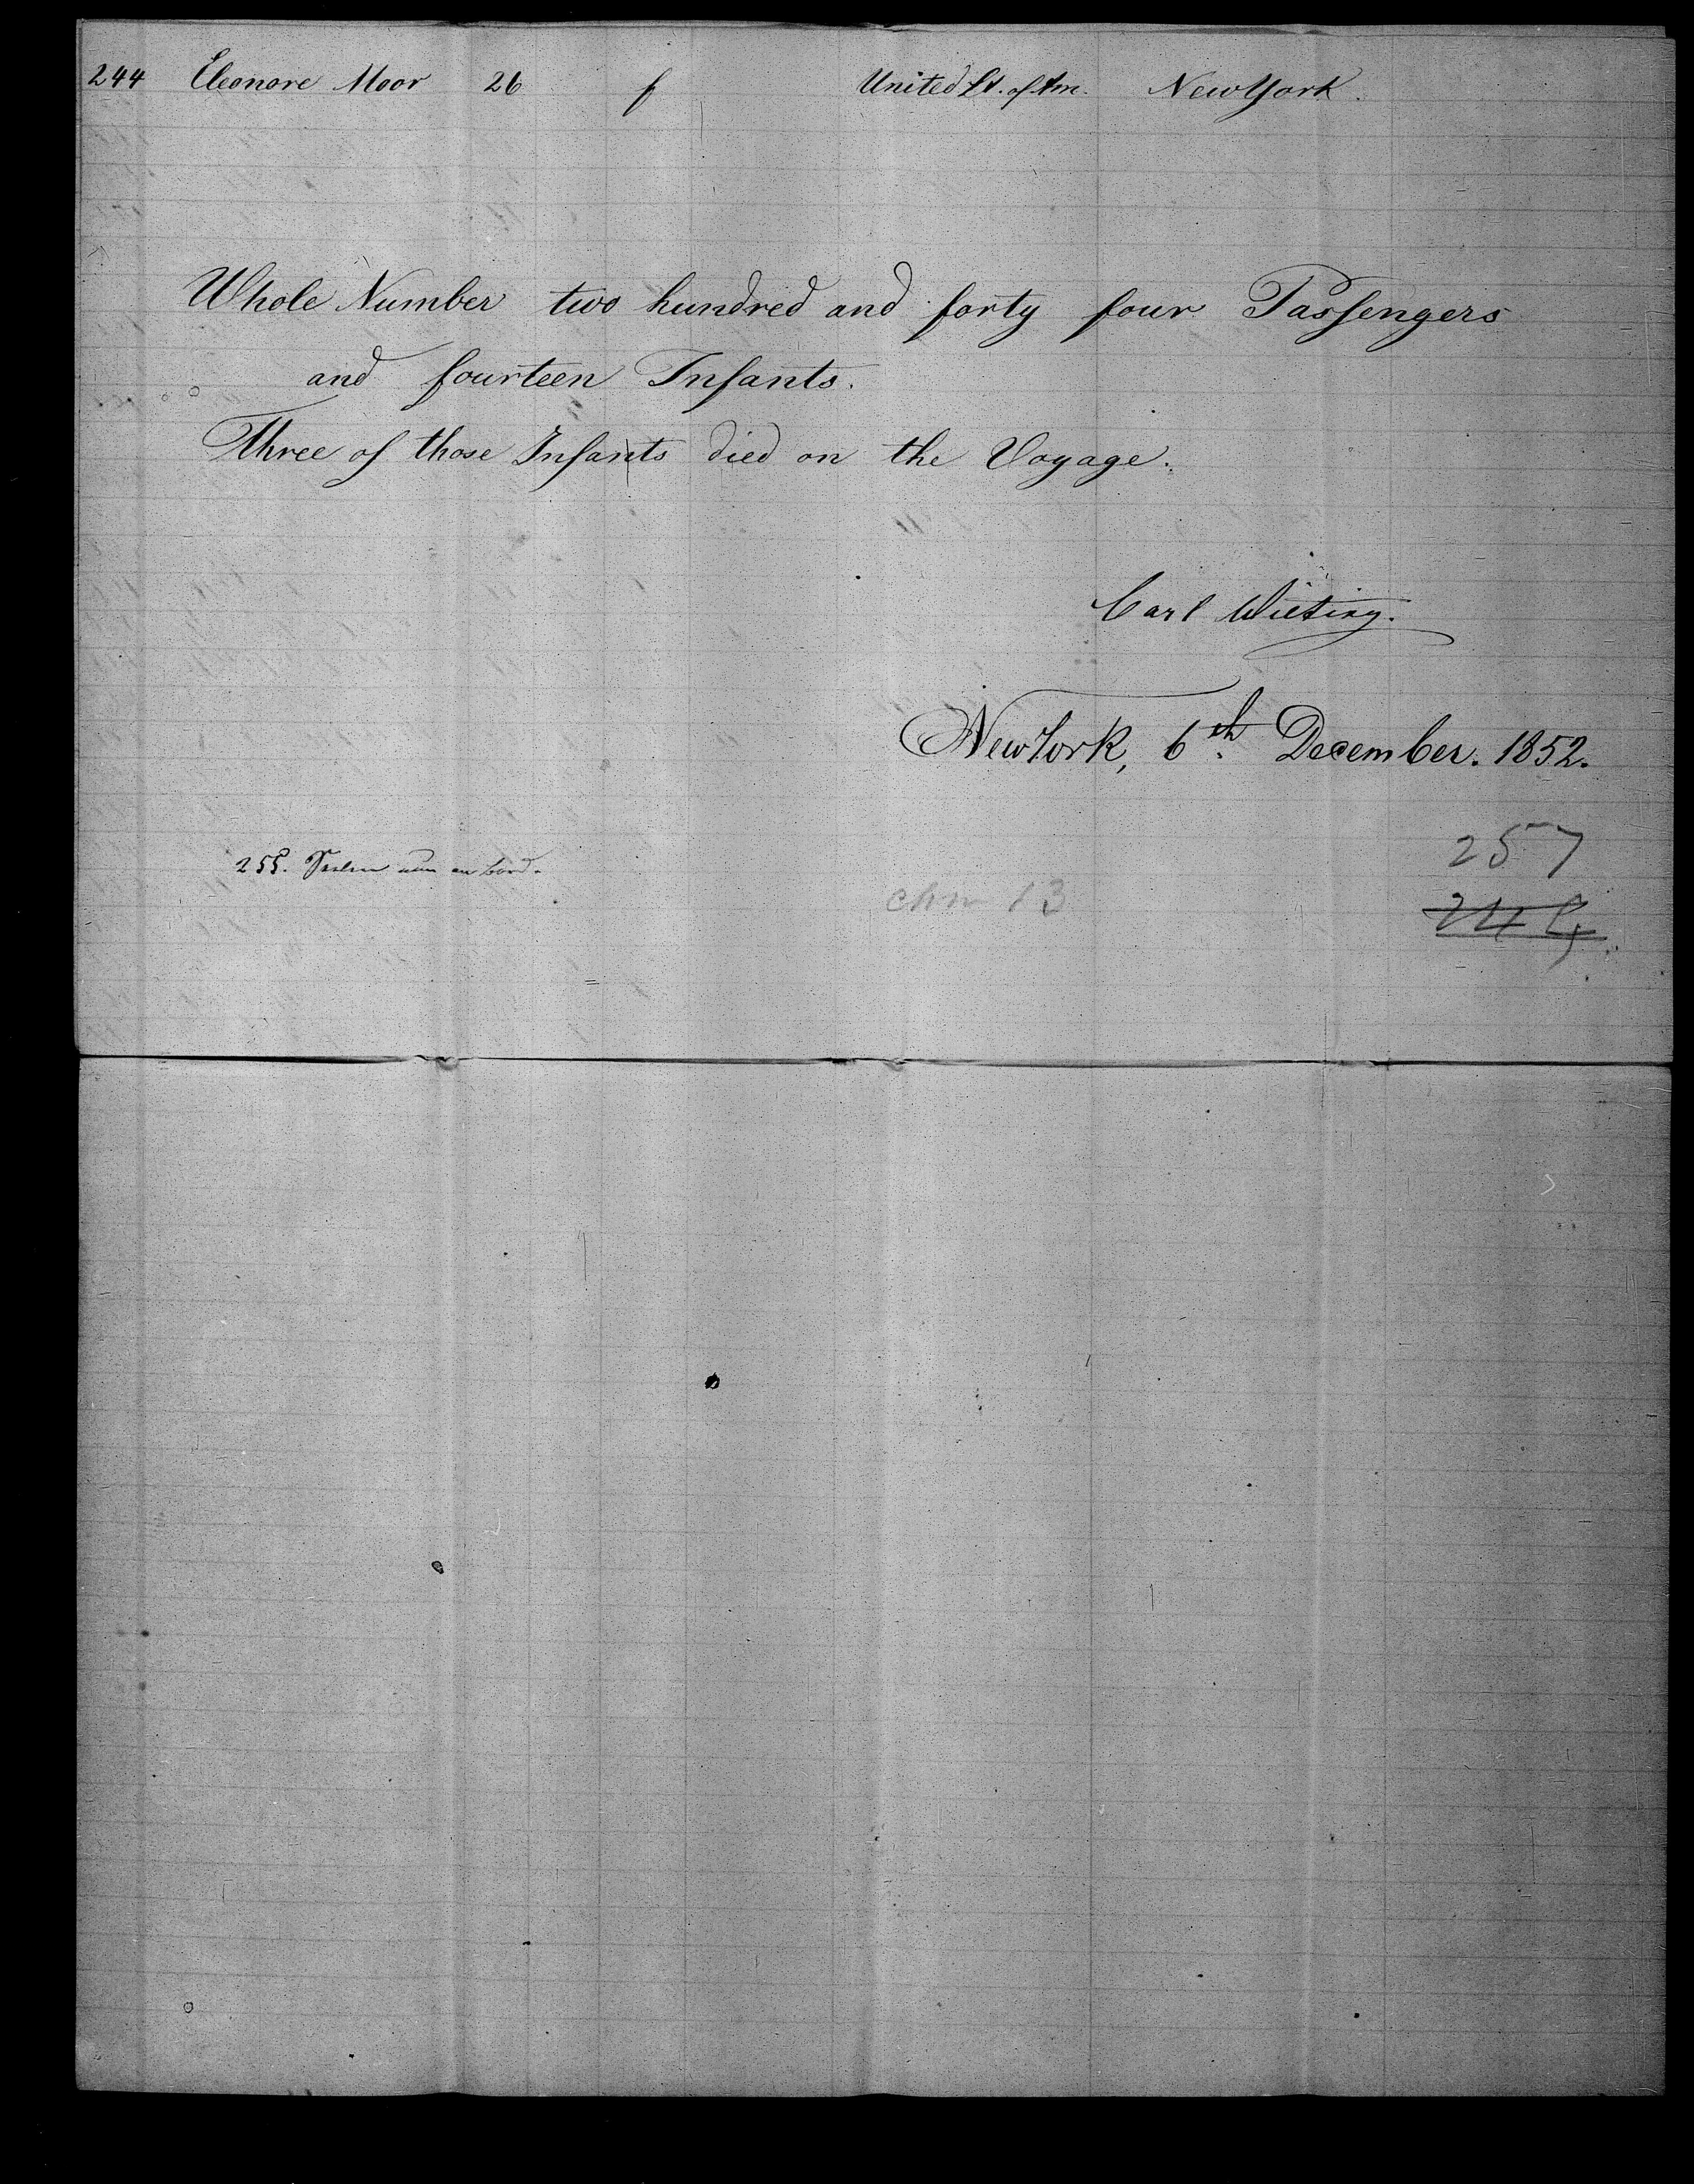 244 Eleonore Moor 26 f United St. of Am. New York.
Whole Number two hundred and forty four Passengers
and fourteen Infants.
Three of those Infants died on the Voyage.
Carl Wieting.
New York, 6th December. 1852.
257
255. Seelen nun an bord.
chn 13
244